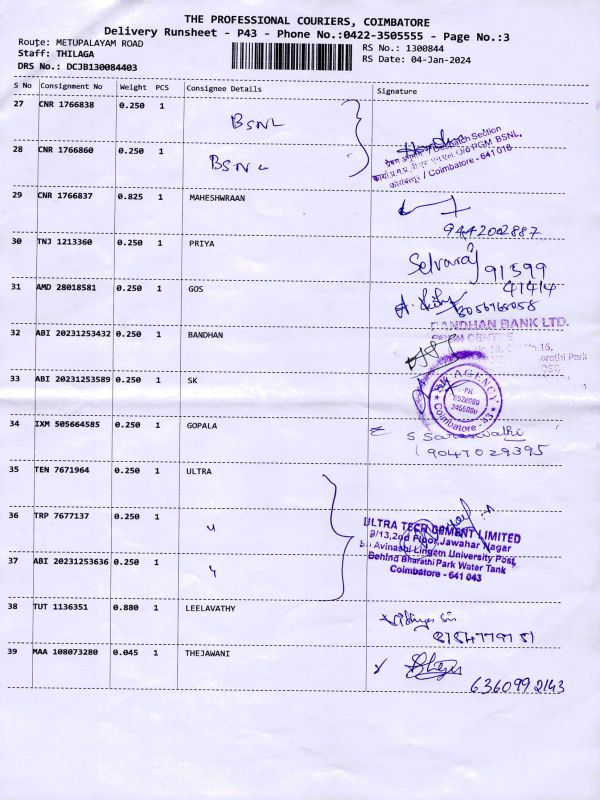 THE PROFESSIONAL COURIERS, COIMBATORE
Delivery Runsheet - P43 - Phone No.:0422-3505555 - Page No.:3
Route: METUPALAYAM ROAD
Staff: THILAGA
DRS No.: DCJB130084403
RS No.: 1300844
RS Date: 04-Jan-2024
S No Consignment No Weight PCS Consignee Details Signature
27 CNR 1766838 0.250 1 BSNL
28 CNR 1766860 0.250 1 BSNL
Despatch Section
O/o PGM BSNL,
कोयम्बत्तूर / Coimbatore - 641 018.
29 CNR 1766837 0.825 1 MAHESHWRAAN
9442002887
30 TNJ 1213360 0.250 1 PRIYA
Selvaraj 91599
41414
31 AMD 28018581 0.250 1 GOS
8056765058
32 ABI 20231253432 0.250 1 BANDHAN
BANDHAN BANK LTD.
Bharathi Park
33 ABI 20231253589 0.250 1 SK
AGENCY
PH
2455080
Coimbatore - 43
34 IXM 505664585 0.250 1 GOPALA
S Saraswathi
9047029395
35 TEN 7671964 0.250 1 ULTRA
36 TRP 7677137 0.250 1 "
ULTRA TECH CEMENT LIMITED
9/13,2nd Floor,Jawahar Nagar
Avinashi Lingem University Post,
Behind Bharathi Park Water Tank
Coimbatore - 641 043
37 ABI 20231253636 0.250 1 "
38 TUT 1136351 0.880 1 LEELAVATHY
39 MAA 108073280 0.045 1 THEJAWANI
6360992143